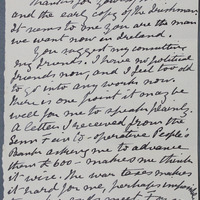 Thanks for your
and the early copy of the Irishman
It seems to me you are the man
we want now in Ireland.
You suggest my consulting
my friends. I have no political
friends now, and I feel too old
to go into any work now.
There is one point it may be
well for me to speak plainly
A letter I received from the
Sinn Fein Co-operative People's
Bank asking me to advance
them £600 - makes me think
it wise. The war taxes makes
it hard for me, perhaps impossible